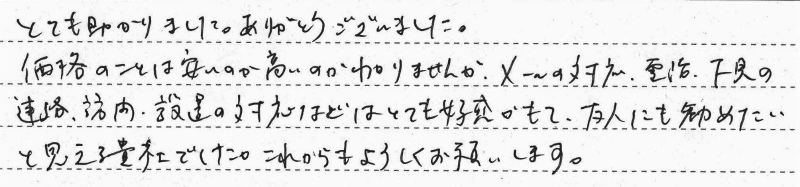 とても助かりました。ありがとうございました。
価格のことは安いのか高いのかわかりませんが、メールの対応、電話、下見の
連絡、訪問、設置の対応などはとても好感がもて、友人にも勧めたい
と思える貴社でした。これからもよろしくお願いします。